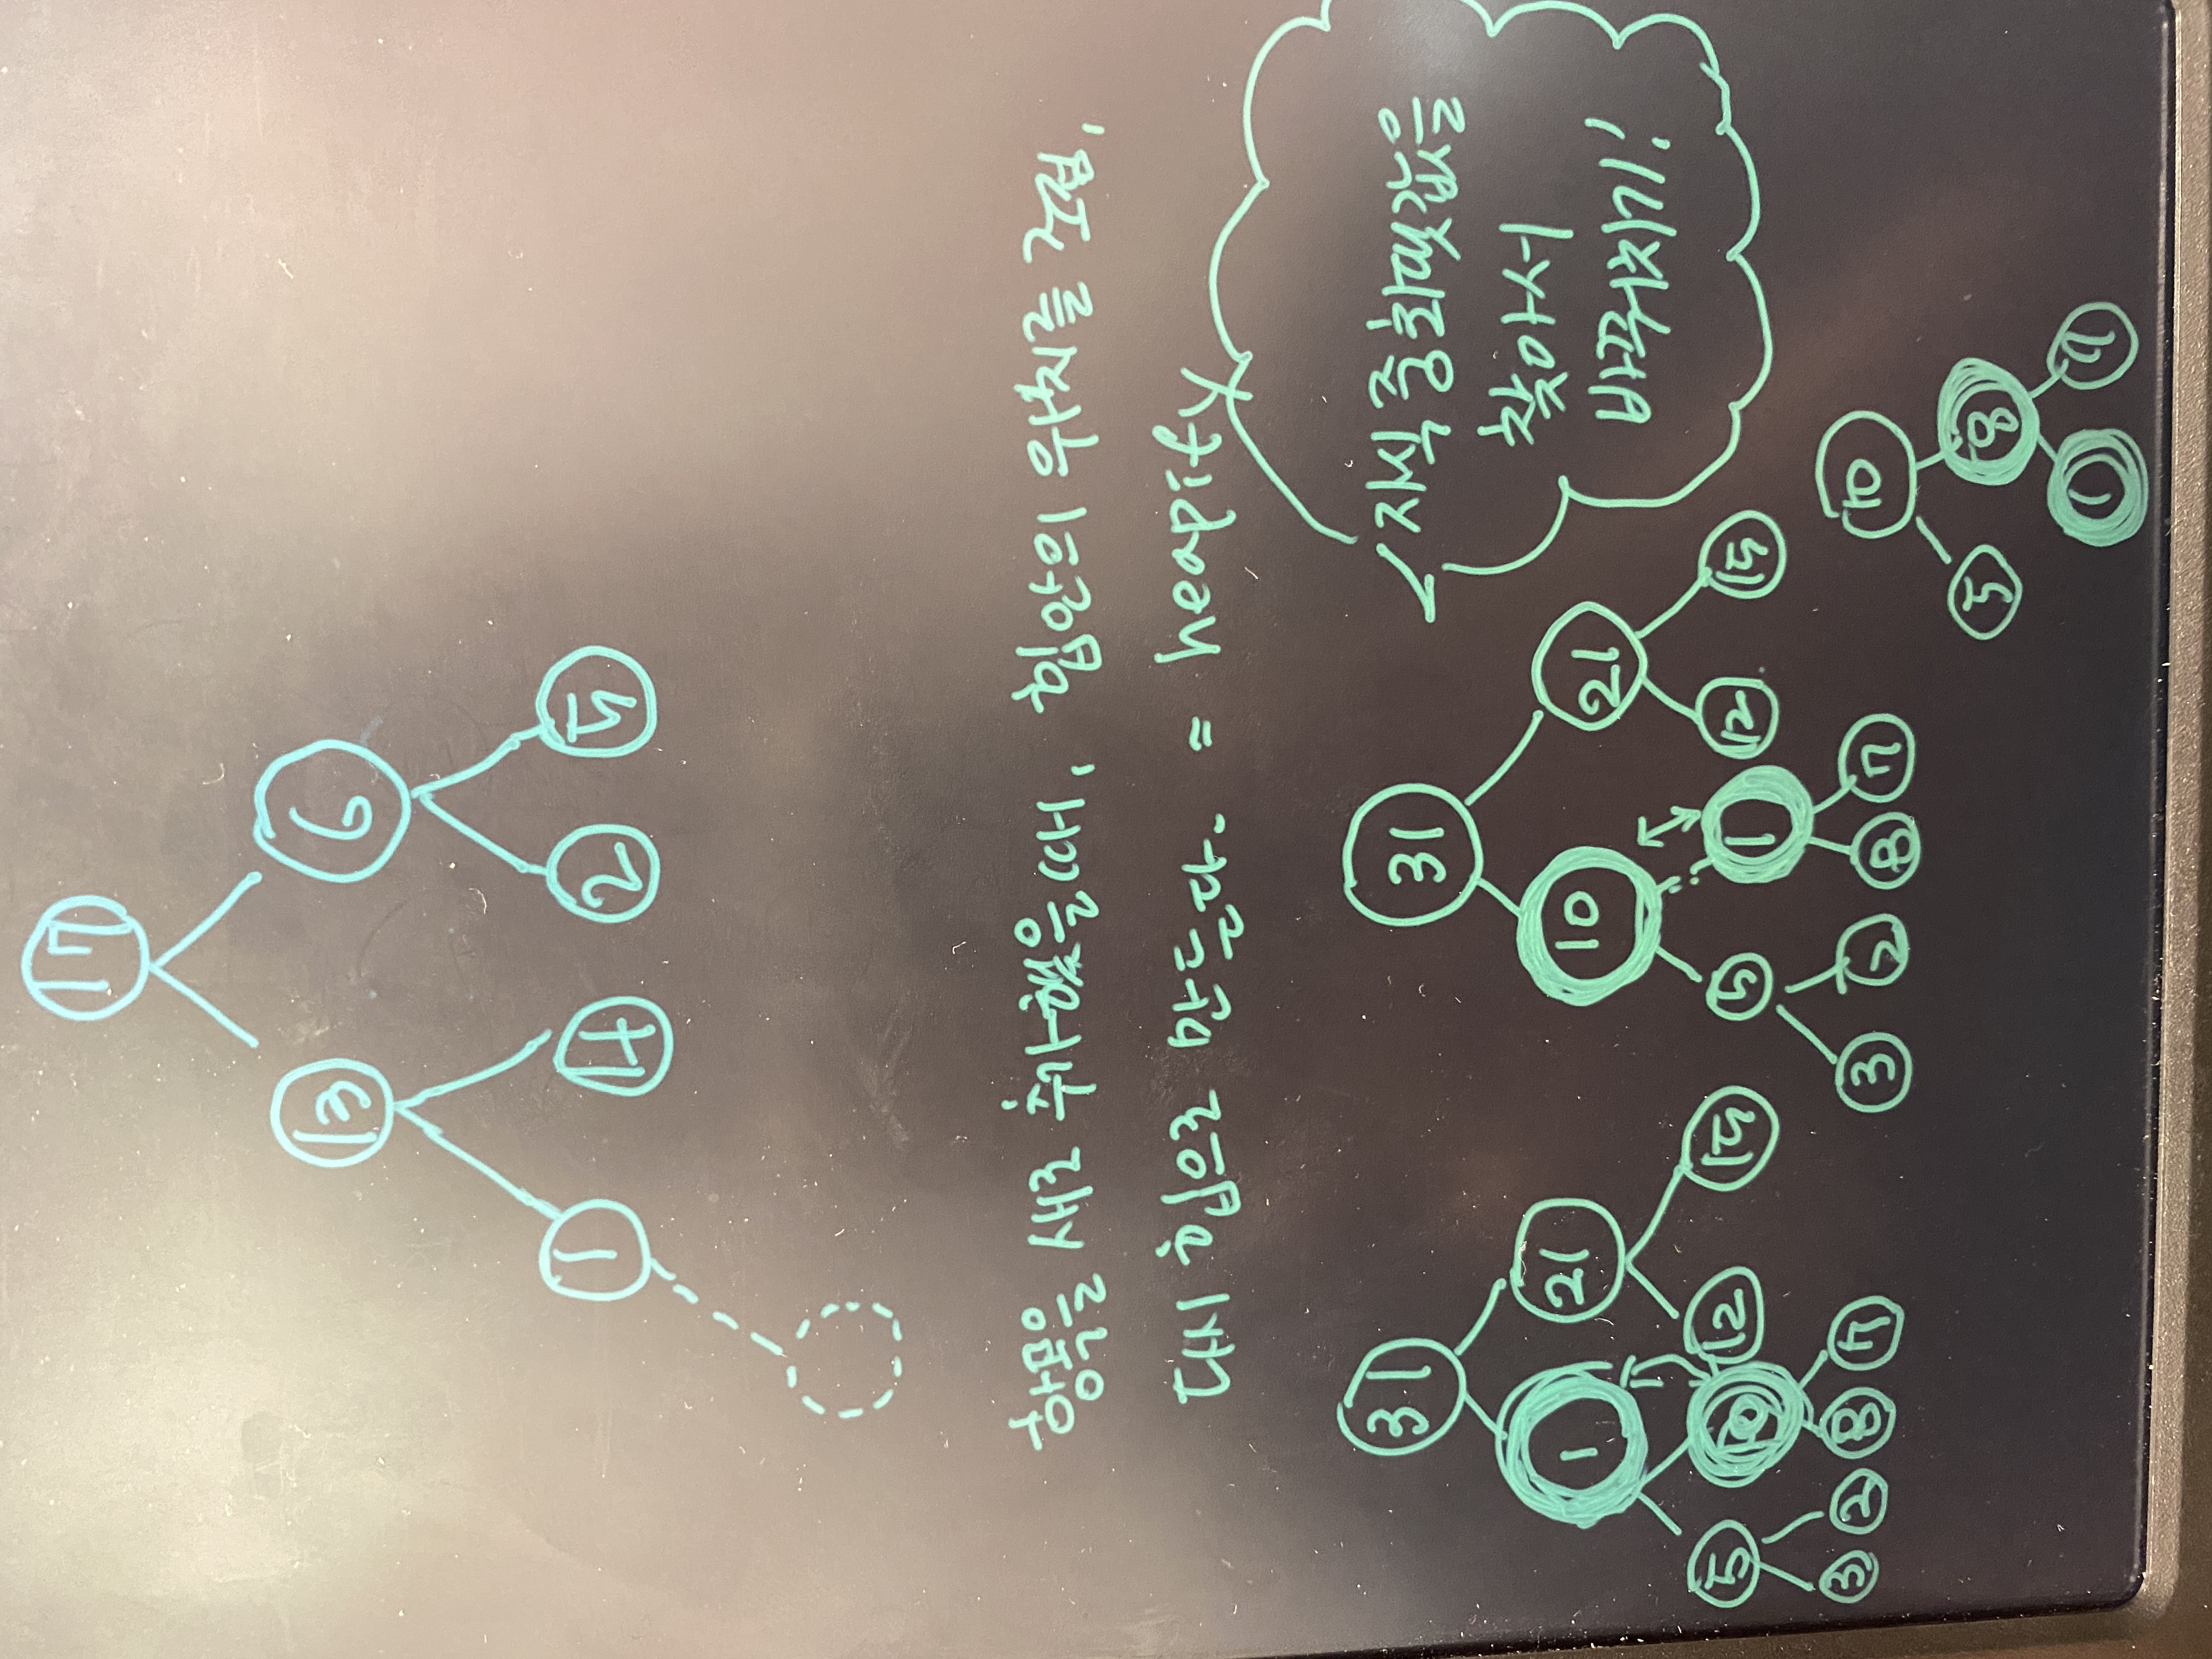 17
13 6
1 4 2 5
항목을 새로 추가했을때, 힙안의 위치를 조점,
다시 힙으로 만든다. = heapify
31
1 21
5 10 12 15
3 2 8 7
31
10 21
5 1 12 15
3 2 8 7
자식 중 화댓값을
찾아서
바꿔치기!
10
5 8
1 7